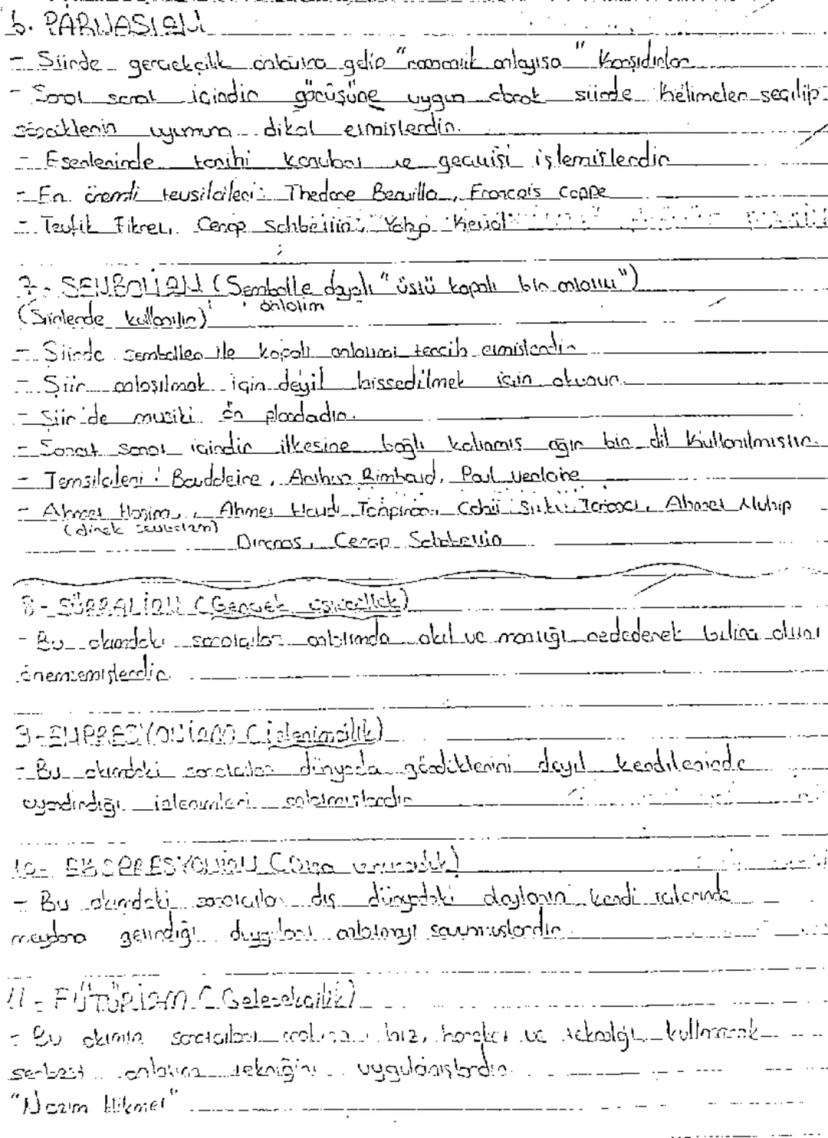 6. PARNASİZM
- Şiirde gerçekçilik anlamına gelip "romantik anlayışa" karşıdırlar
- Sanat sanat içindir görüşüne uygun olarak şiirde kelimeler seçilip
sözcüklerin uyumuna dikkat etmişlerdir.
- Eserlerinde tarihi konuları ve geçmişi işlemişlerdir
- En önemli temsilcileri: Thedore Banvilla, François Coppe
- Tevfik Fikret, Cenap Şahbettin, Yahya Kemal
7- SEMBOLİZM (Sembolle dayalı "üstü kapalı bir anlatım")
(Şiirlerde kullanılır) anlatım
- Şiirde semboller ile kapalı anlatımı tercih etmişlerdir
- Şiir anlaşılmak için değil hissedilmek için okunur.
- Şiir'de musiki ön plandadır.
- Sanat sanat içindir ilkesine bağlı kalınmış ağır bir dil kullanılmıştır.
- Temsilcileri: Bauddeire, Arthur Rimbaud, Paul Verlaine
- Ahmet Haşim, Ahmet Hamdi Tanpınar, Cahit Sıtkı Tarancı, Ahmet Muhip
(direk sembolizm)
Dıranas, Cenap Şahabettin
8- SÜRRALİZM (Gerçek üstücülük)
- Bu akımdaki sanatçılar anlatımda akıl ve mantığı reddederek bilinç altını
önemsemişlerdir.
9- EMPRESYONİZM (izlenimcilik)
- Bu akımdaki sanatçılar dünyada gördüklerini değil kendilerinde
uyandırdığı izlenimleri anlatmışlardır
10- EKSPRESYONİZM (Dışa vurumculuk)
- Bu akımdaki sanatçılar dış dünyadaki olayların kendi içlerinde
meydana getirdiği duyguları anlatmayı savunmuşlardır.
11- FÜTÜRİZM (Gelecekçilik)
- Bu akımın sanatçıları hız, hareket ve tekniği kullanarak
serbest anlatım tekniğini uygulamışlardır.
"Nazım Hikmet"